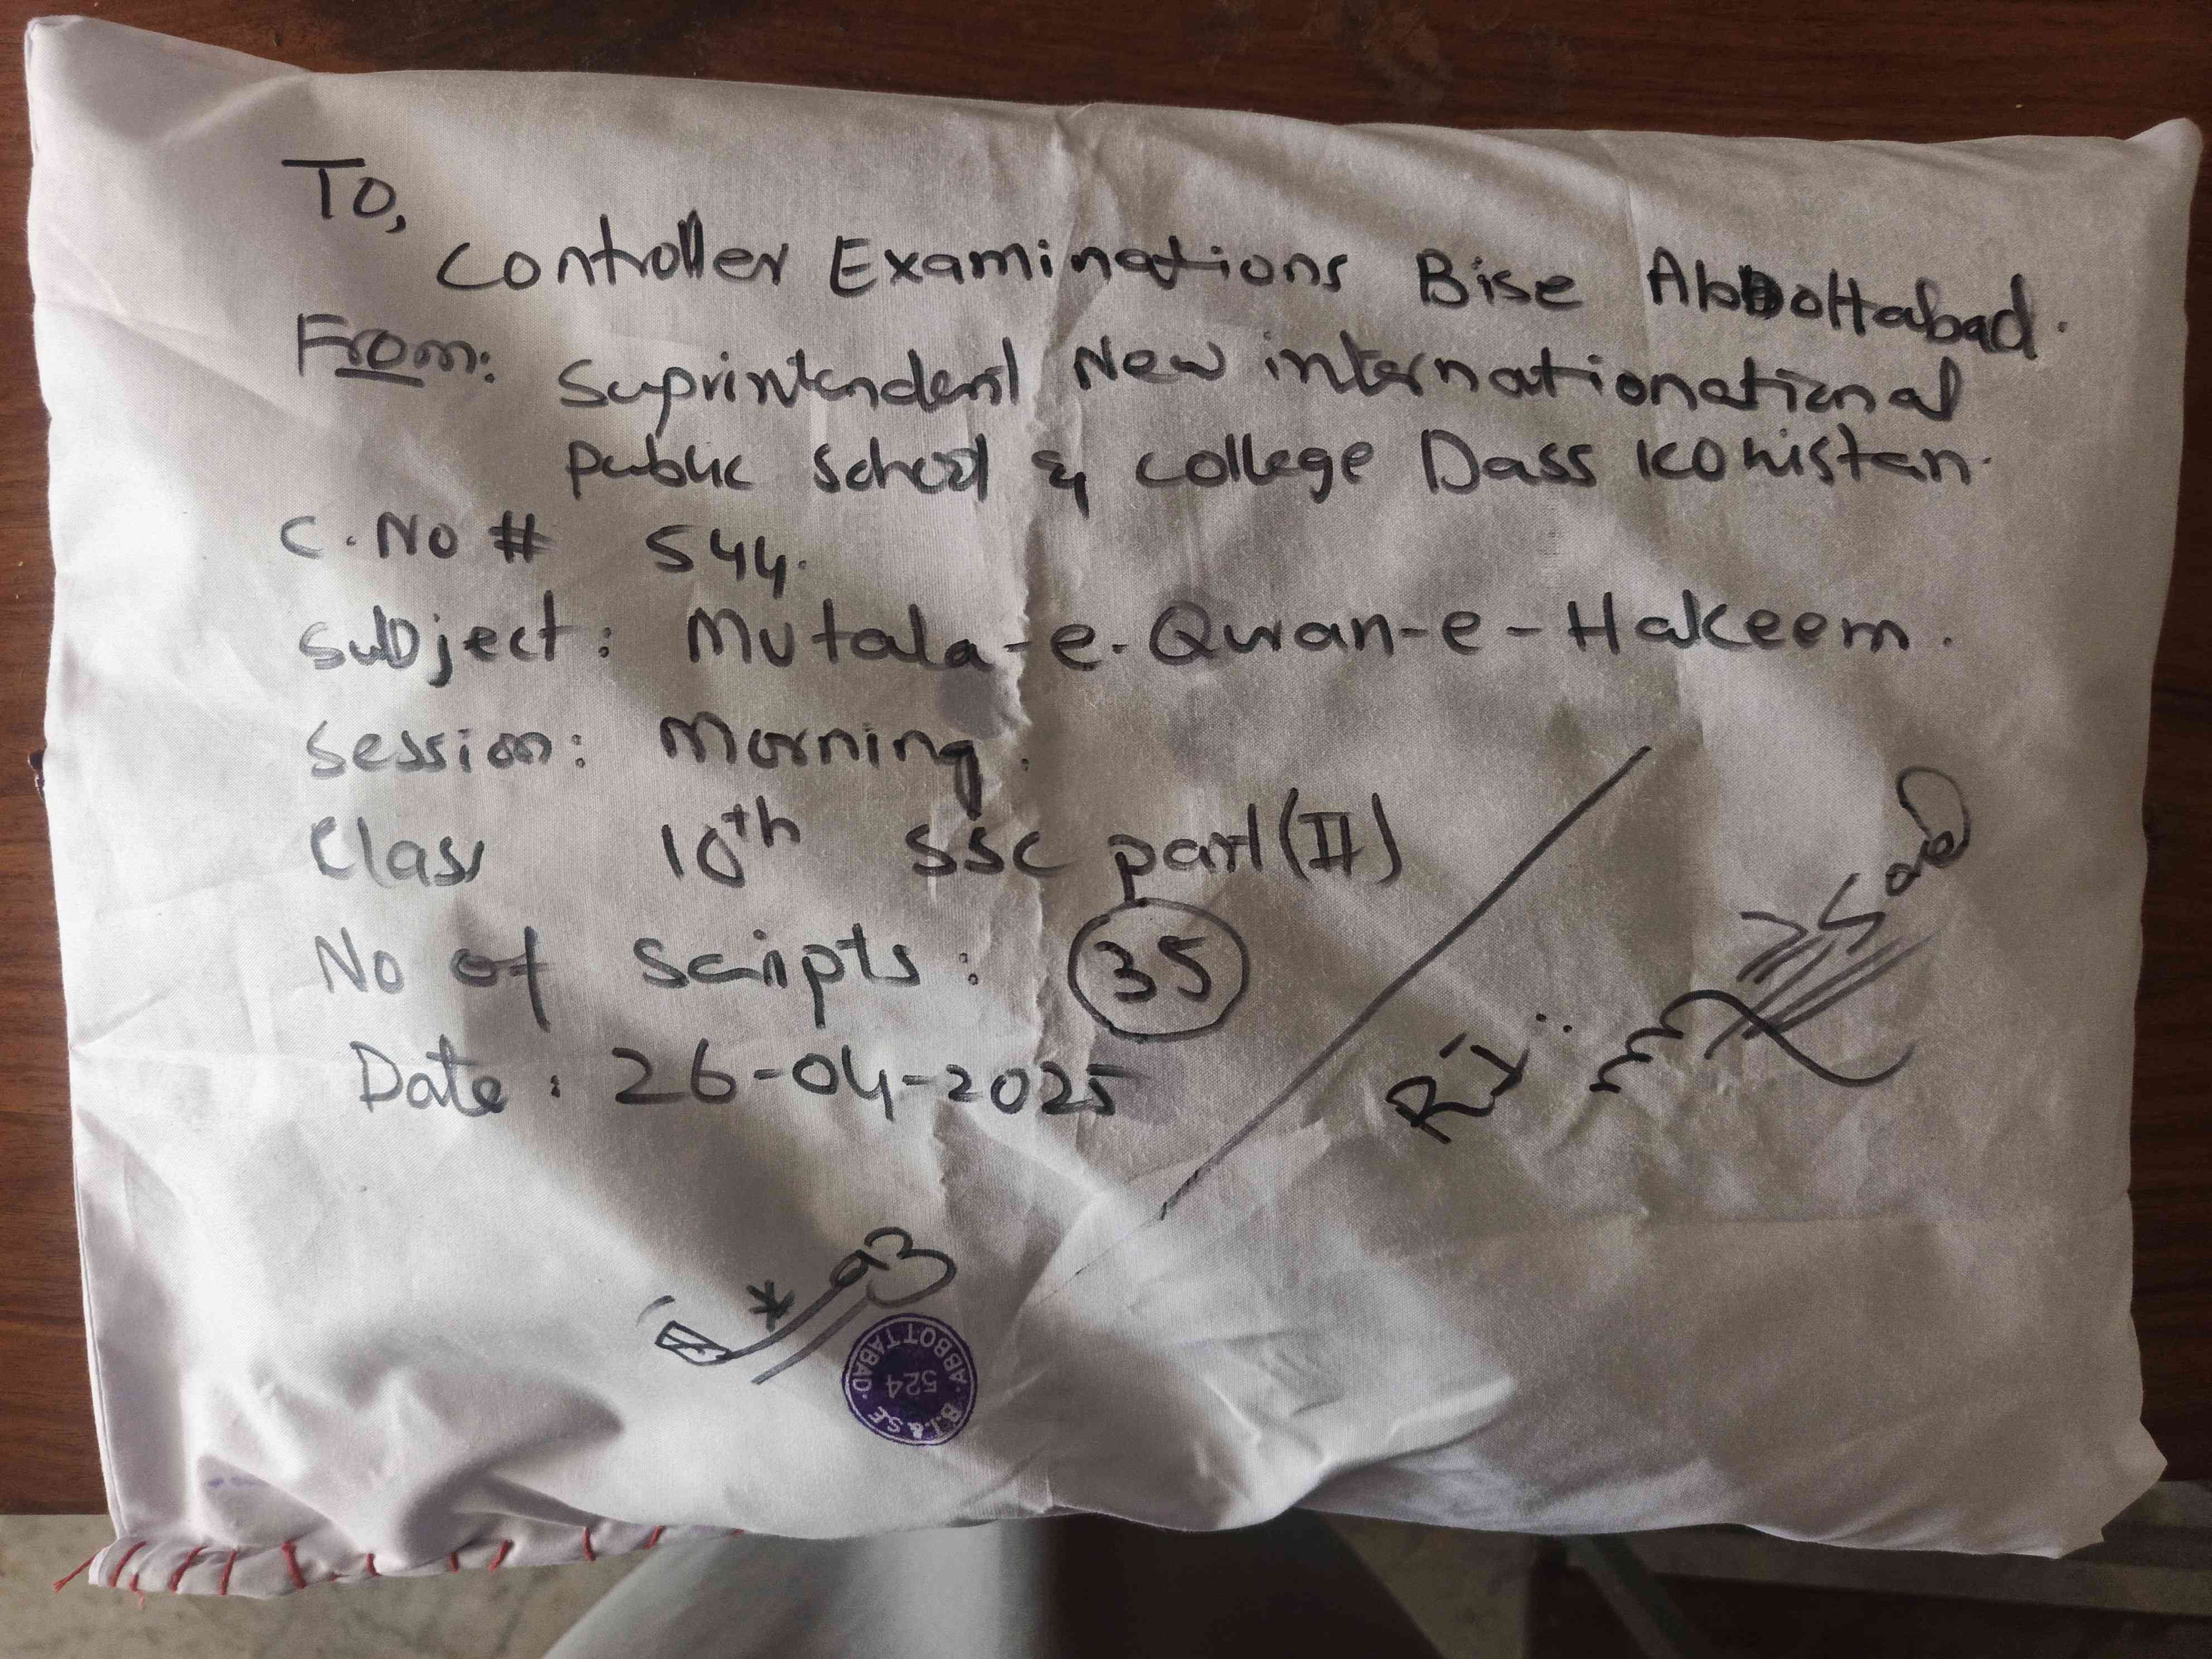 To,
Controller Examinations Bise Abbottabad.
From: Suprintendent New internationational
public school & college Dass Kohistan.
C.No # 544.
Subject: Mutala-e-Quran-e-Hakeem.
Session: Morning.
Class 10th SSC part (II)
No of Scripts: 35
Date: 26-04-2025
B.I.&S.E. ABBOTTABAD.
524